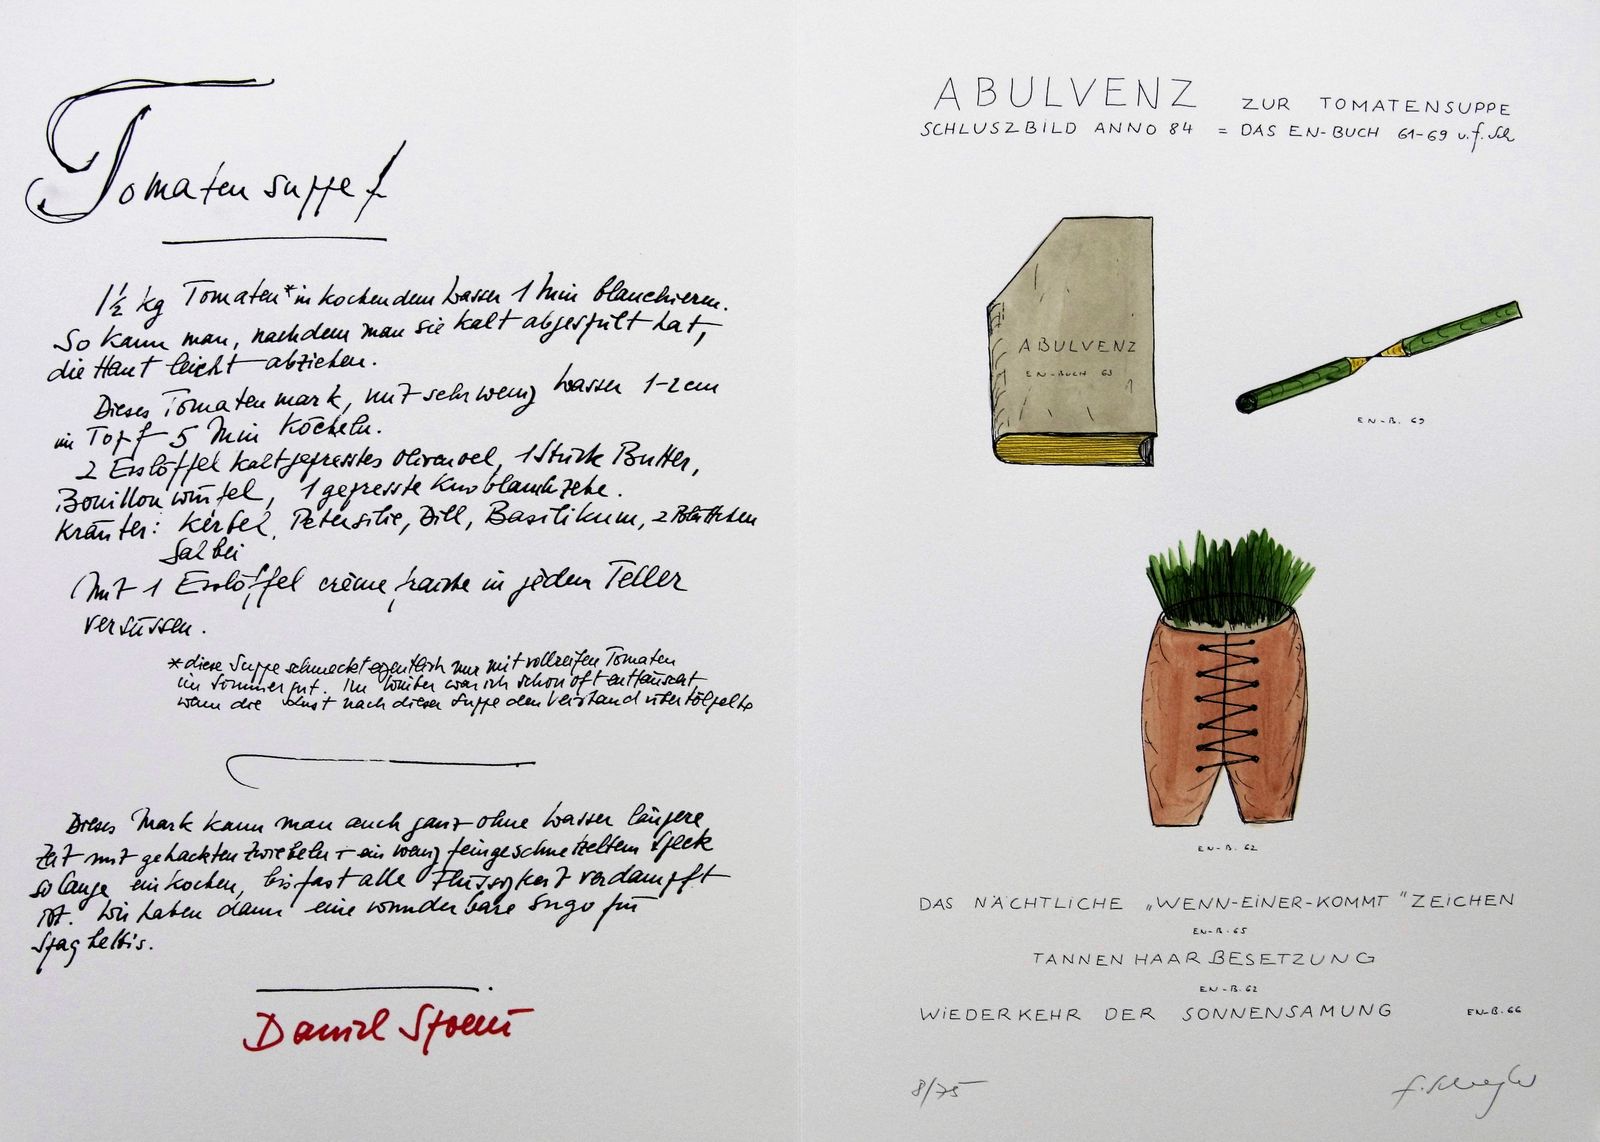 Tomatensuppe
1½ kg Tomaten* in kochendem Wasser 1 Min blanchieren.
So kann man, nachdem man sie kalt abgespült hat,
die Haut leicht abziehen.
Dieses Tomatenmark, mit sehr wenig Wasser 1-2 cm
im Topf 5 Min köcheln.
2 Esslöffel kaltgepresstes Olivenoel, 1 Stück Butter,
Bouillonwürfel, 1 gepresste Knoblauchzehe.
Kräuter: Kerbel, Petersilie, Dill, Basilikum, 2 Blättchen
Salbei
Mit 1 Esslöffel crème fraiche in jedem Teller
versüssen.
*diese Suppe schmeckt eigentlich nur mit vollreifen Tomaten
im Sommer gut. Im Winter war ich schon oft enttäuscht,
wenn die Lust nach dieser Suppe den Verstand übertölpelte
Dieses Mark kann man auch ganz ohne Wasser längere
Zeit mit gehackten Zwiebeln + ein wenig feingeschnetzeltem Speck
so lange einkochen, bis fast alle Flüssigkeit verdampft
ist. Wir haben dann eine wunderbare Sugo für
Spaghettis.
Daniel Spoerri
ABULVENZ ZUR TOMATENSUPPE
SCHLUSZBILD ANNO 84 = DAS EN-BUCH 61-69 u.f. Sch
ABULVENZ
EN-BUCH 63
EN-B. 69
EN-B. 62
DAS NÄCHTLICHE „WENN-EINER-KOMMT" ZEICHEN
EN-B. 65
TANNENHAARBESETZUNG
EN-B. 62
WIEDERKEHR DER SONNENSAMUNG EN-B. 66
8/75